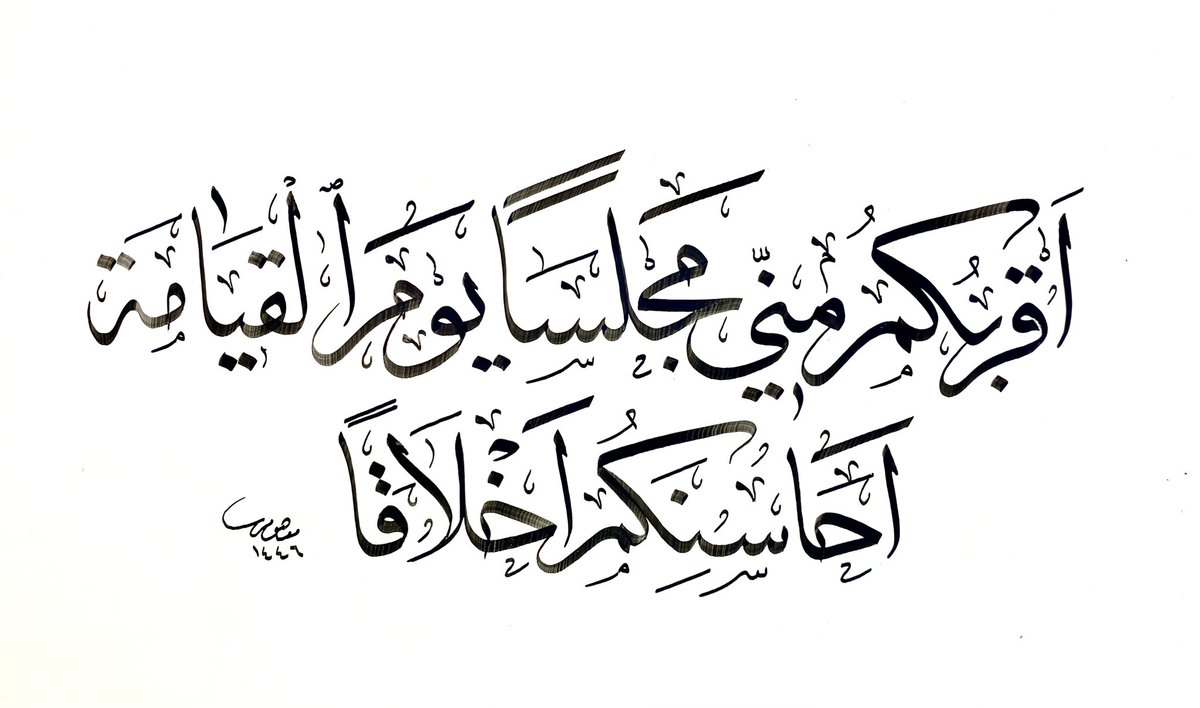 أَقْرَبُكُمْ مِنِّي مَجْلِسًا يَوْمَ ٱلْقِيَامَةِ
أَحَاسِنُكُمْ أَخْلَاقًا
١٤٤٦